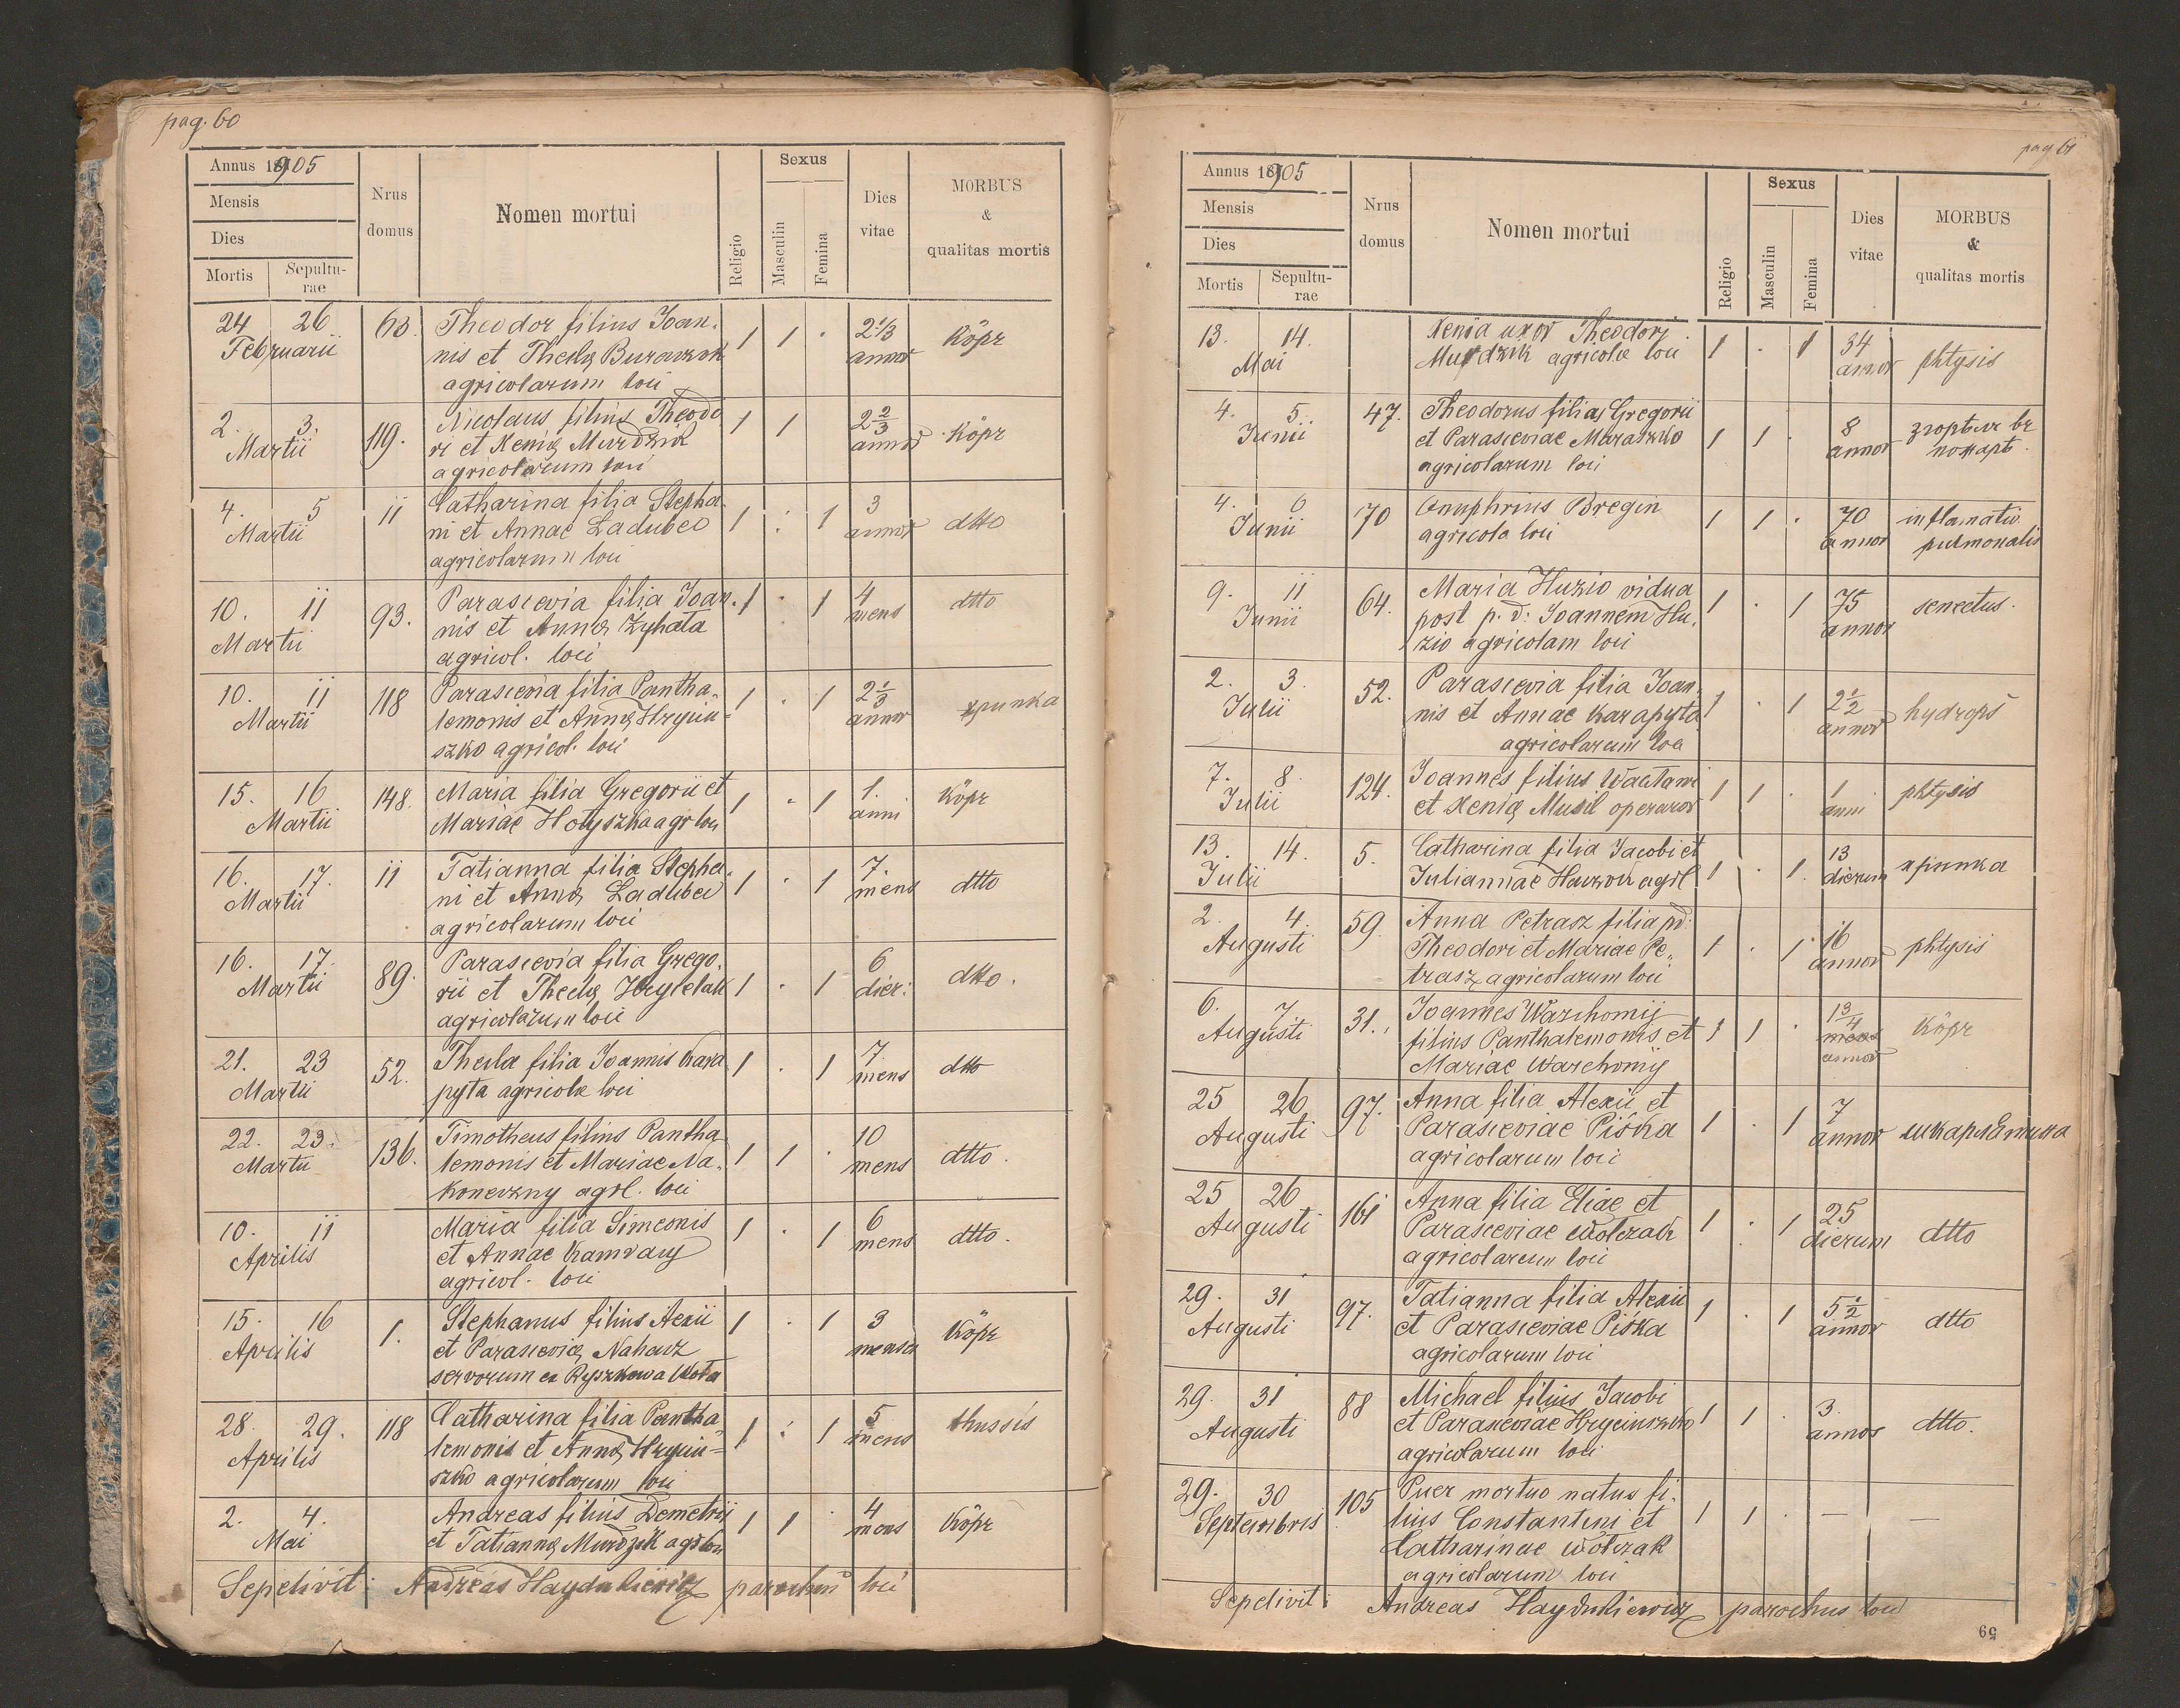 pag. 60
Annus 1905
Mensis
Dies
Mortis
Sepultu-
rae
Nrus
domus
Nomen mortui
Religio
Sexus
Masculin
Femina
Dies
vitae
MORBUS
&
qualitas mortis
24 26 63. Theodor filius Joan- 1 1 · 2 1/3 Köpr
Februarii nis et Theclae annor
agricolarum loci
2. 3. 119. Nicolaus filius Theodo 1 1 2 2/3 Köpr
Martii ri et Xeniae Murdzik annor
agricolarum loci
4. 5 11 Catharina filia Stepha- 1 · 1 3 dtto
Martii ni et Annae Ladubec annor
agricolarum loci
10. 11 93. Parascevia filia Joan- 1 · 1 4 dtto
Martii nis et Annae Zyhata mens
agricol. loci
10. 11 118 Parascevia filia Pantha- 1 · 1 2 1/3 хрипка
Martii lemonis et Annae Hryciu- annor
szko agricol. loci
15. 16 148. Maria filia Gregorii et 1 · 1 1. Köpr
Martii Mariae Hotyszka agr loci anni
16. 17. 11 Tatianna filia Stepha- 1 · 1 7. dtto
Martii ni et Annae Ladubec mens
agricolarum loci
16. 17. 89. Parascevia filia Grego- 1 · 1 6 dtto.
Martii rii et Theclae Hrylelak dier:
agricolarum loci
21. 23 52. Thecla filia Joannis Kara 1 · 1 7. dtto
Martii pyta agricolae loci mens
22. 23. 136. Timotheus filius Pantha 1 1 · 10 dtto.
Martii lemonis et Mariae Na- mens
koneczny agrl. loci
10. 11 Maria filia Simeonis 1 · 1 6 dtto.
Aprilis et Annae mens
agricol. loci
15. 16 1. Stephanus filius Alexii 1 · 1 3 Köpr
Aprilis et Parasceviae Nahacz
servorum ex Ryszkowa Wola
28. 29. 118 Catharina filia Pantha 1 : 1 5 thussis
Aprilis lemonis et Annae Hryciu- mens
szko agricolarum loci
2. 4. Andreas filius Demetrii 1 1 · 4 Köpr
Mai et Tatiannae Murdzik agr loci mens
Sepelivit: Andreas Haydukiewicz parochus loci
pag 61
Annus 1905
Mensis
Dies
Mortis
Sepultu-
rae
Nrus
domus
Nomen mortui
Religio
Sexus
Masculin
Femina
Dies
vitae
MORBUS
&
qualitas mortis
13. 14. Xenia uxor Theodori 1 · 1 34 phtysis
Mai Murdzik agricolae loci annor
4. 5. 47. Theodorus filius Gregorii 1 1 · 8
Junii et Parasceviae Maraszko annor
agricolarum loci
4. 6 70 Onuphrius Bregin 1 1 · 70 inflamatio
Junii agricola loci annor pulmonalis
9. 11 64. Maria Huzio vidua 1 · 1 75 senectus.
Junii post p. d: Joannem Hu- annor
zio agricolam loci
2. 3. 52. Parascevia filia Joan- 1 · 1 2 1/2 hydrops
Julii nis et Annae Karapyta annor
agricolarum loci
7. 8. 124. Joannes filius 1 1 · 1 phtysis
Julii et Xeniae Musil operaror anni
13. 14. 5. Catharina filia Jacobi et 1 · 1. 13 хрипка
Julii Juliannae agrl dierum
2. 4. 59. Anna Petrasz filia pd: 1 · 1 · 16 phtysis
Augusti Theodori et Mariae Pe- annor
trasz agricolarum loci
6. 7. 31. Joannes Warchomij 1 1 · 13/4 Köpr
Augusti filius Panthalemonis et mens
Mariae Warchomij annor
25 26 97. Anna filia Alexii et 1 · 1 7 шкарлатина
Augusti Parasceviae Piśka annor
agricolarum loci
25 26 161 Anna filia Eliae et 1 · 1 25 dtto
Augusti Parasceviae Wolczak dierum
agricolarum loci
29. 31 97. Tatianna filia Alexii 1 · 1 5 1/2 dtto
Augusti et Parasceviae Piśka annor
agricolarum loci
29. 31 88 Michael filius Jacobi 1 1 · 3 dtto.
Augusti et Parasceviae Hryciuszko annor
agricolarum loci
29. 30 105 Puer mortuo natus fi- 1 1 · — —
Septembris lius Constantini et
Catharinae Wolczak
agricolarum loci
Sepelivit: Andreas Haydukiewicz parochus loci